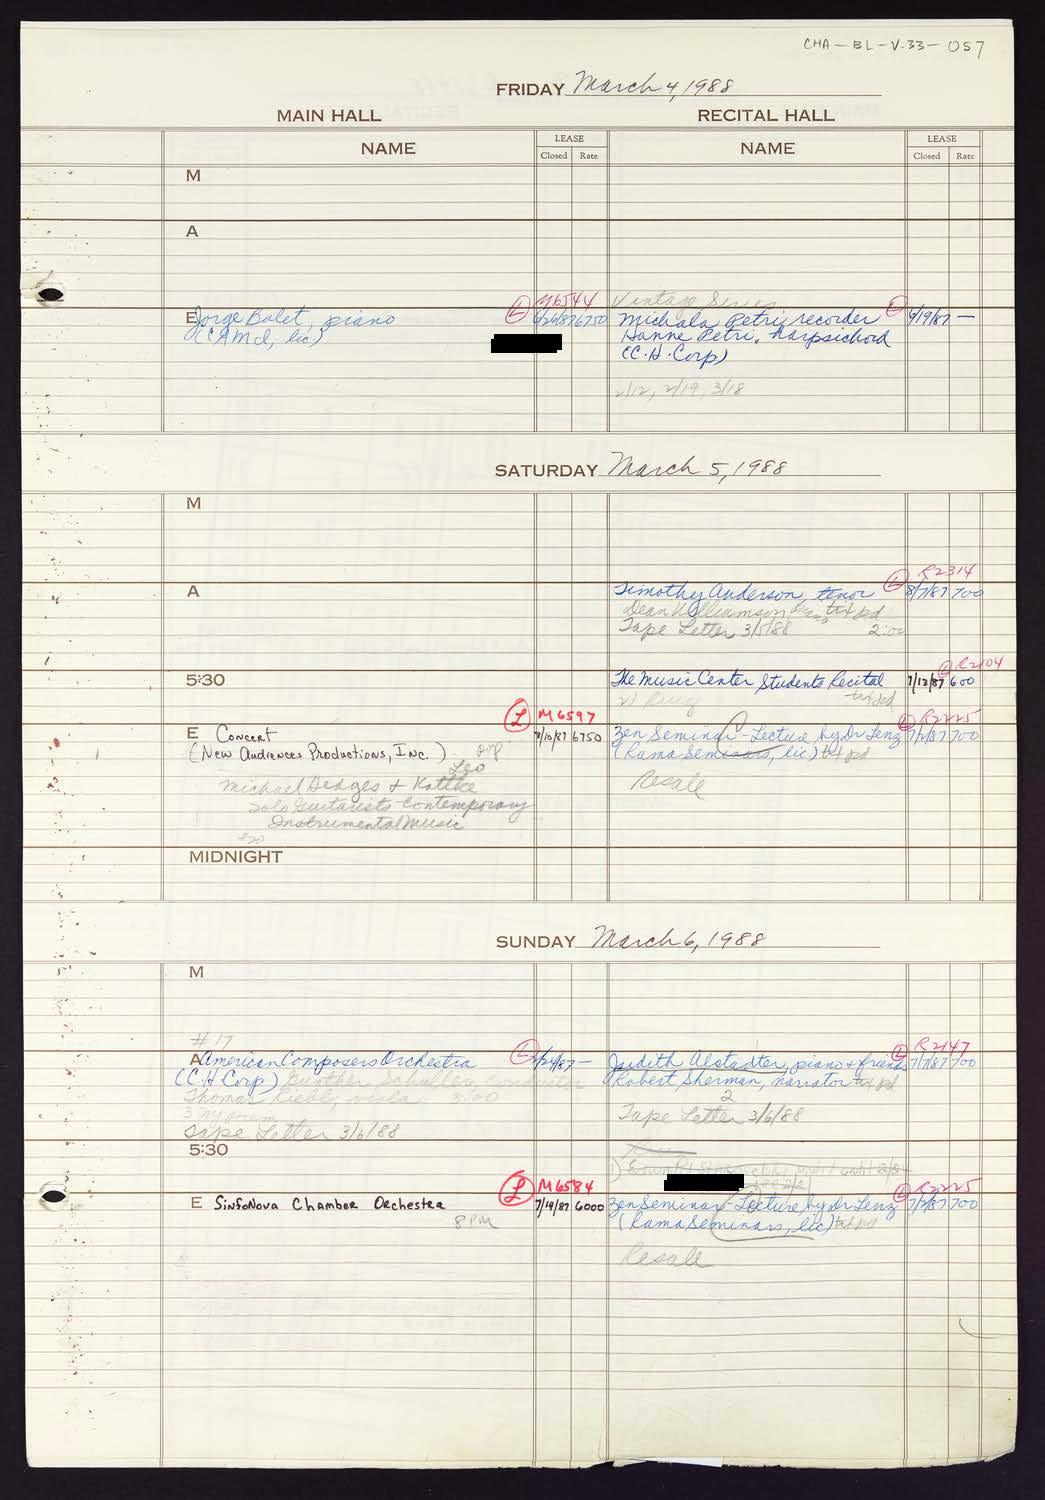 CHA-BL-V.33-057
FRIDAY March 4, 1988
MAIN HALL
RECITAL HALL
NAME
LEASE
Closed Rate
NAME
LEASE
Closed Rate
M
A
E Jorge Bolet, piano
(CAMI, lic)
L M6544
6750
Vintage Series
Michala Petri, recorder L 6/19/87 —
Hanne Petri, harpsichord
(C.H. Corp)
2/12, 2/19, 3/18
SATURDAY March 5, 1988
M
A
Timothy Anderson, tenor L R2314 8/7/87 700
Dean Williamson tax pd
Tape Letter 3/5/88 2:00
5:30
The Music Center Students Recital L R2104 7/13/87 600
tax pd
E Concert L M6597 8/10/87 6750
(New Audiences Productions, Inc.)
Leo
Michael Hedges & Kottke
Solo Guitarists Contemporary
Instrumental Music
Zen Seminar - Lecture by Dr Lenz L R2225 7/7/87 700
(Rama Seminars, lic) tax pd
Resale
MIDNIGHT
SUNDAY March 6, 1988
M
#17
A American Composers Orchestra L
(C.H. Corp) Gunther Schuller, conductor
Thomas Riebl, viola 3:00
3 NY prem
Tape Letter 3/6/88
Judith Alstadter, piano & friends L R2147 7/7/87 700
Robert Sherman, narrator tax pd
2
Tape Letter 3/6/88
5:30
E SinfoNova Chamber Orchestra L M6584 7/14/87 6000
8 PM
Zen Seminar - Lecture by Dr Lenz L R2225 7/7/87 700
(Rama Seminars, lic) tax pd
Resale